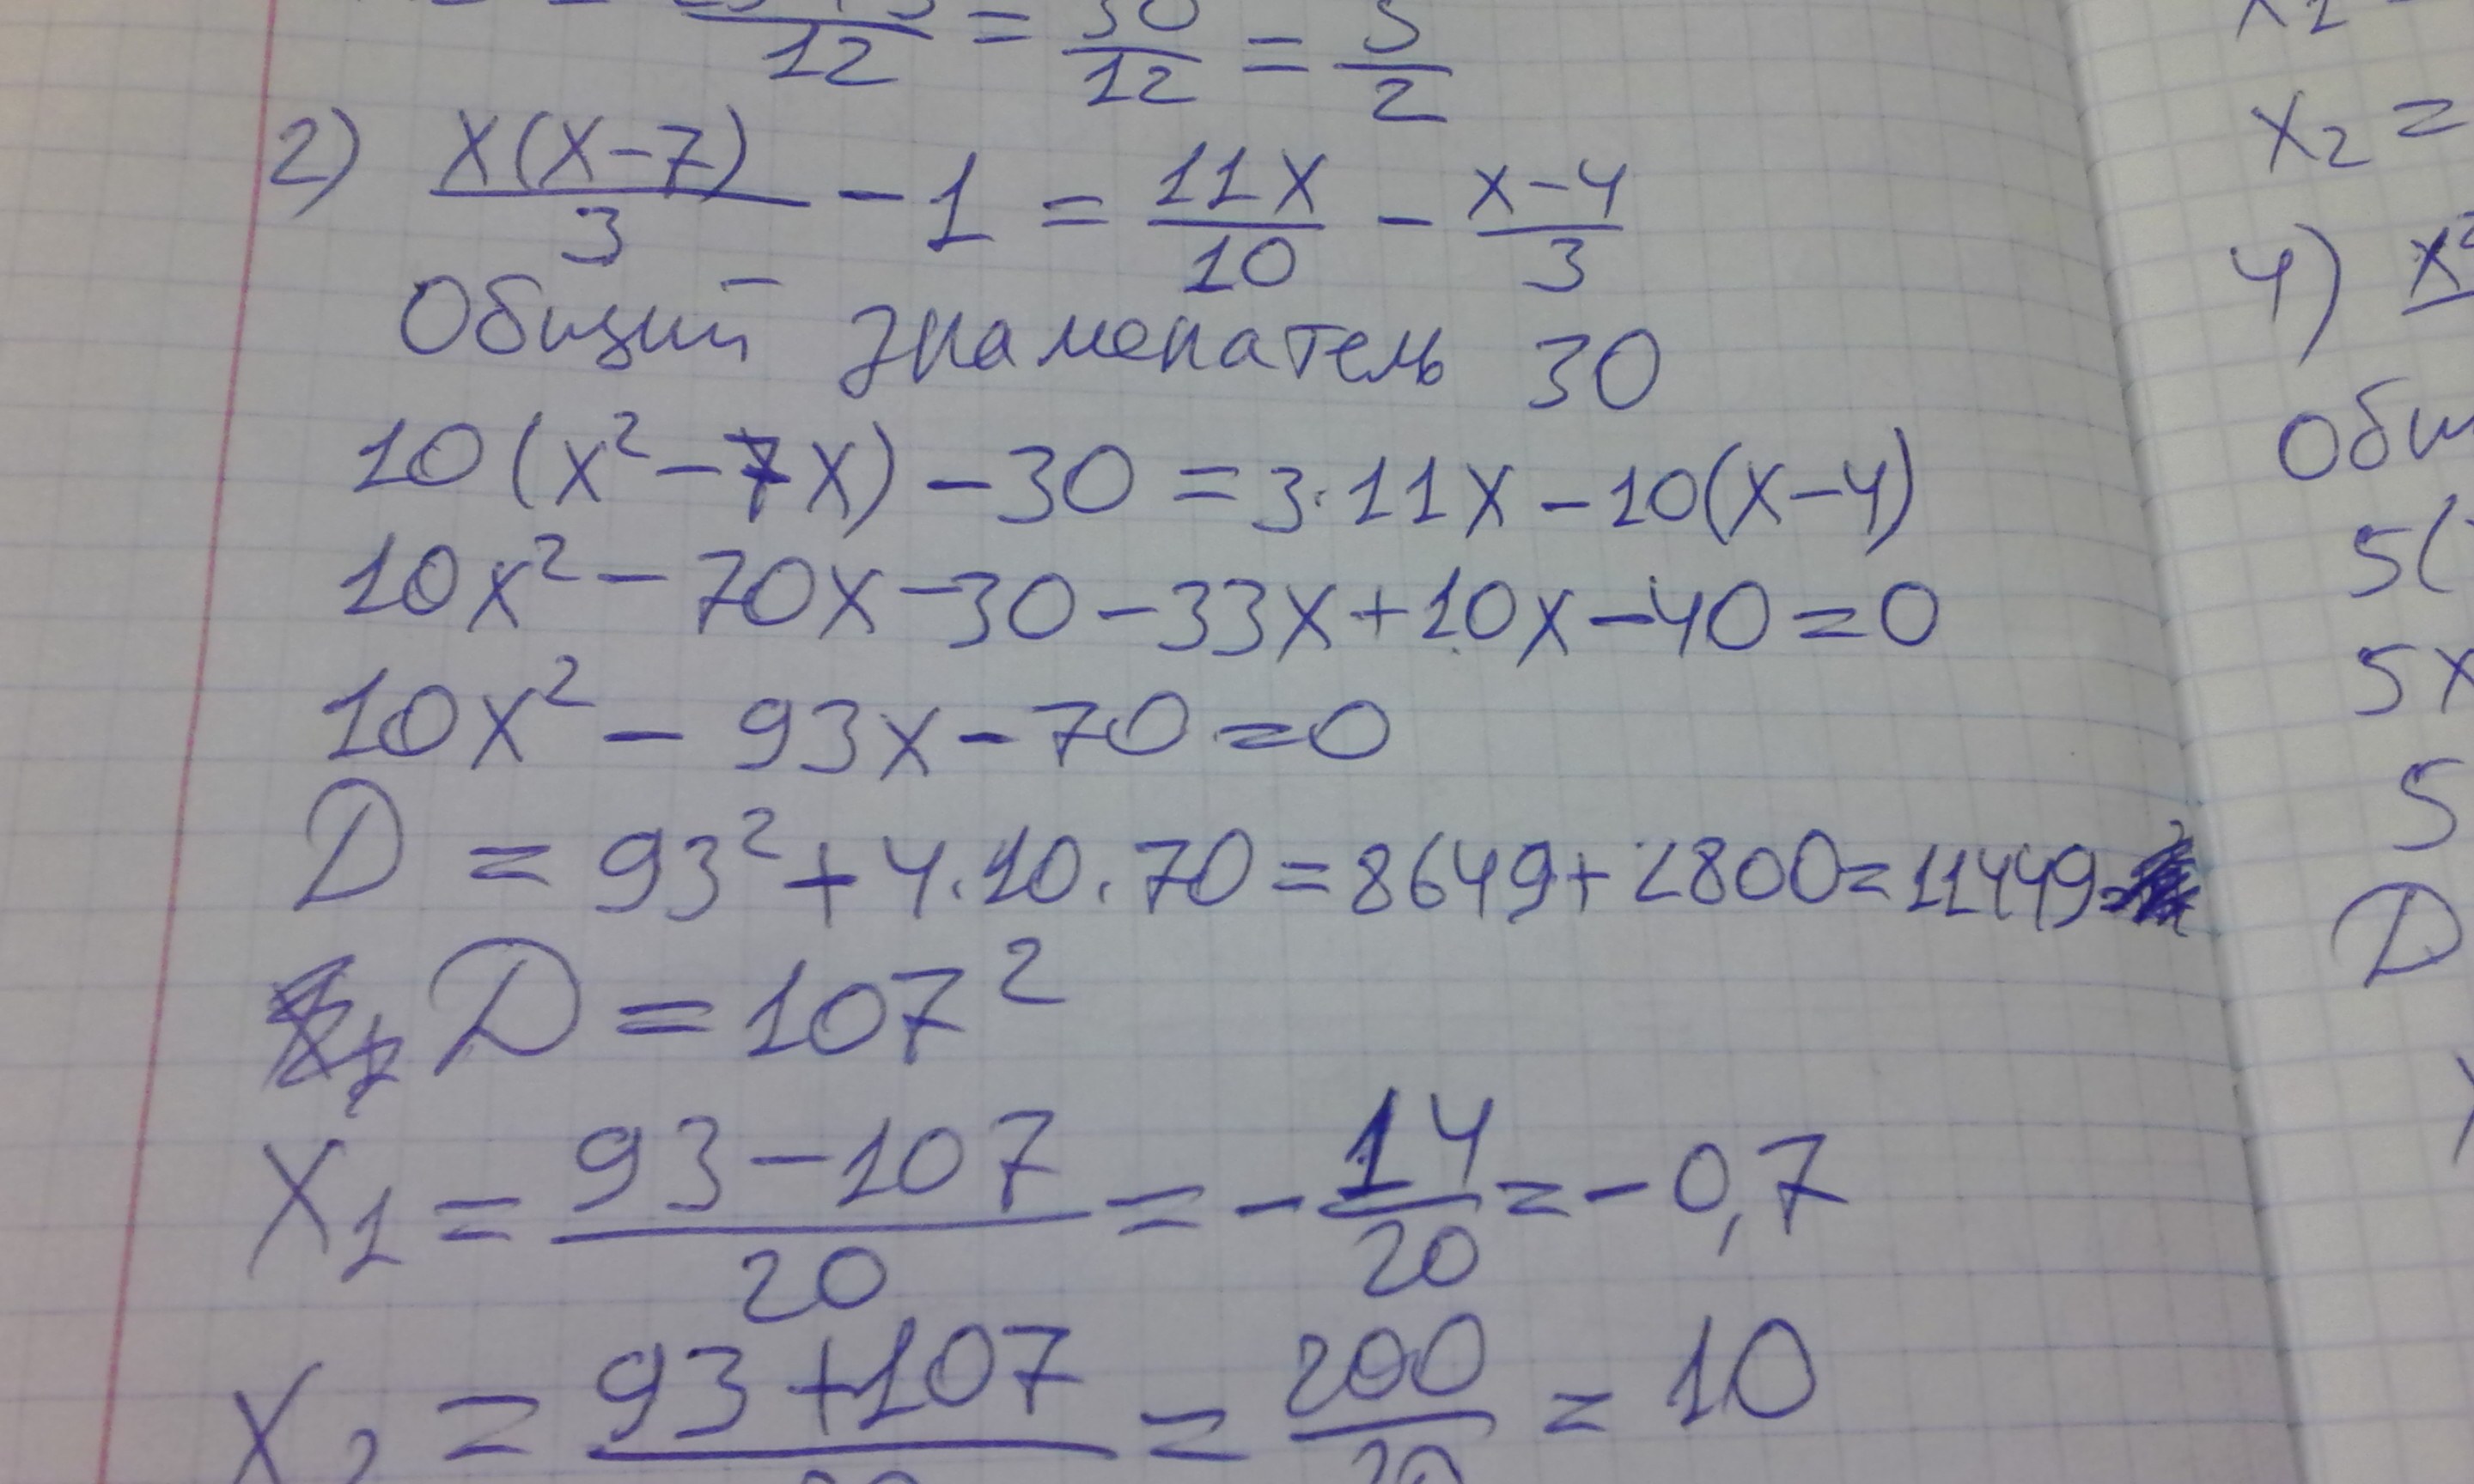 12 = 30/12 = 5/2
2) x(x-7)/3 - 1 = 11x/10 - x-4/3
Общий знаменатель 30
10(x² - 7x) - 30 = 3·11x - 10(x-4)
10x² - 70x - 30 - 33x + 10x - 40 = 0
10x² - 93x - 70 = 0
D = 93² + 4·10·70 = 8649 + 2800 = 11449
D = 107²
x₁ = 93-107/20 = - 14/20 = - 0,7
x₂ = 93+107/20 = 200/20 = 10
x₂ =
4) x²
Общ
5(
5x
5
D